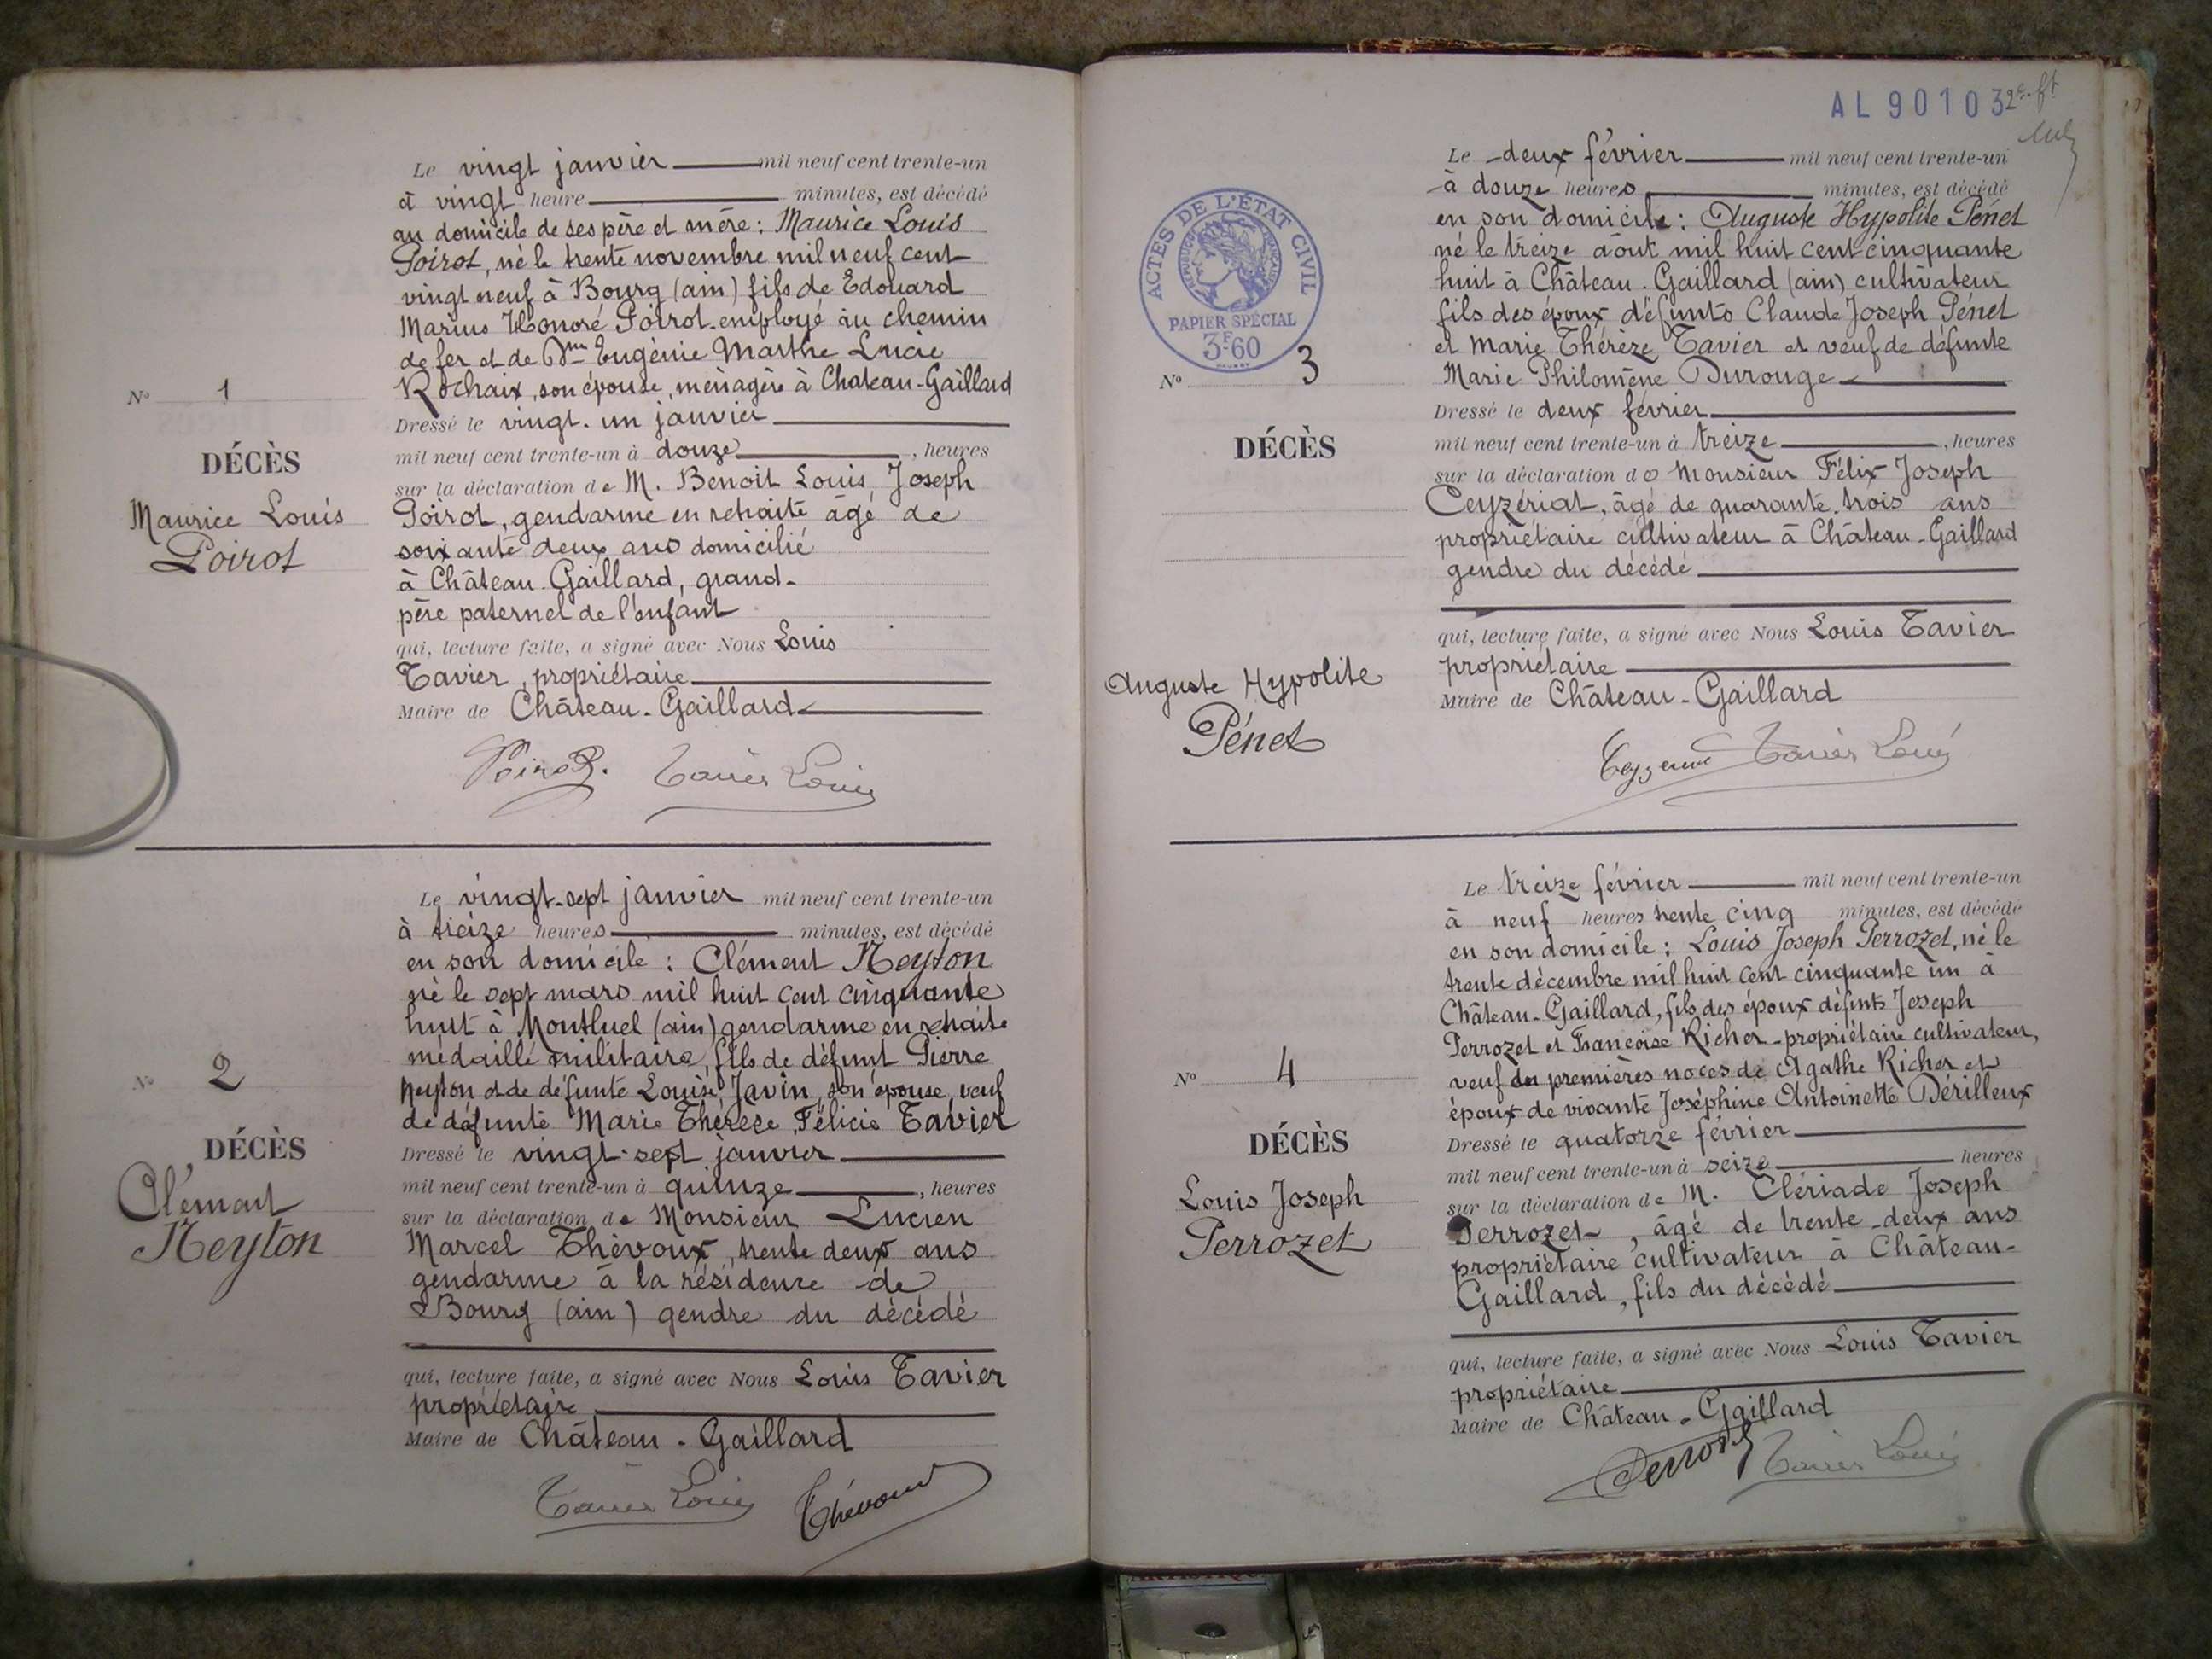 Le vingt janvier mil neuf cent trente-un
à vingt heure minutes, est décédé
au domicile de ses père et mère : Maurice Louis
Poirot, né le trente novembre mil neuf cent
vingt neuf à Bourg (ain) fils de Edouard
Marius Honoré Poirot employé au chemin
de fer et de Dme Eugènie Marthe Lucie
Rochaix, son épouse, ménagère à Chateau-Gaillard
N° 1
DÉCÈS
Maurice Louis
Poirot
Dressé le vingt. un janvier
mil neuf cent trente-un à douze, heures
sur la déclaration de M. Benoit Louis Joseph
Poirot, gendarme en retraite âgé de
soixante deux ans domicilié
à Château-Gaillard, grand-
père paternel de l'enfant
qui, lecture faite, a signé avec Nous Louis
Tavier, propriétaire
Maire de Château-Gaillard
Poirot. Tavier Louis
Le vingt-sept janvier mil neuf cent trente-un
à treize heures minutes, est décédé
en son domicile : Clément Neyton
né le sept mars mil huit cent cinquante
huit à Montluel (ain) gendarme en retraite
médaillé militaire, fils de défunt Pierre
Neyton et de défunte Louise Javin, son épouse, veuf
de défunte Marie Thérèse Félicie Tavier
N° 2
DÉCÈS
Clément
Neyton
Dressé le vingt-sept janvier
mil neuf cent trente-un à quinze, heures
sur la déclaration de Monsieur Lucien
Marcel Thévoux, trente deux ans
gendarme à la résidence de
Bourg (ain) gendre du décédé
qui, lecture faite, a signé avec Nous Louis Tavier
propriétaire
Maire de Château-Gaillard
Tavier Louis Thévoux
AL 90103 2e ft
ACTES DE L'ÉTAT CIVIL
RÉPUBLIQUE FRANÇAISE
PAPIER SPÉCIAL
3F60
Le deux février mil neuf cent trente-un
à douze heures minutes, est décédé
en son domicile : Auguste Hypolite Pénet
né le treize août mil huit cent cinquante
huit à Château-Gaillard (ain) cultivateur
fils des époux défunts Claude Joseph Pénet
et Marie Thérèze Tavier et veuf de défunte
Marie Philomène Durouge
N° 3
DÉCÈS
Auguste Hypolite
Pénet
Dressé le deux février
mil neuf cent trente-un à treize, heures
sur la déclaration de Monsieur Félix Joseph
Ceyzériat, âgé de quarante trois ans
propriétaire cultivateur à Château-Gaillard
gendre du décédé
qui, lecture faite, a signé avec Nous Louis Tavier
propriétaire
Maire de Château-Gaillard
Tavier Louis
Le treize février mil neuf cent trente-un
à neuf heures trente cinq minutes, est décédé
en son domicile : Louis Joseph Perrozet, né le
trente décembre mil huit cent cinquante un à
Château-Gaillard, fils des époux défunts Joseph
Perrozet et Françoise Richer propriétaire cultivateur,
veuf en premières noces de Agathe Richer et
époux de vivante Joséphine Antoinette Dérilleux
N° 4
DÉCÈS
Louis Joseph
Perrozet
Dressé le quatorze février
mil neuf cent trente-un à seize heures
sur la déclaration de M. Clériade Joseph
Perrozet, âgé de trente-deux ans
propriétaire cultivateur à Château-
Gaillard, fils du décédé
qui, lecture faite, a signé avec Nous Louis Tavier
propriétaire
Maire de Château-Gaillard
Perrozet Tavier Louis